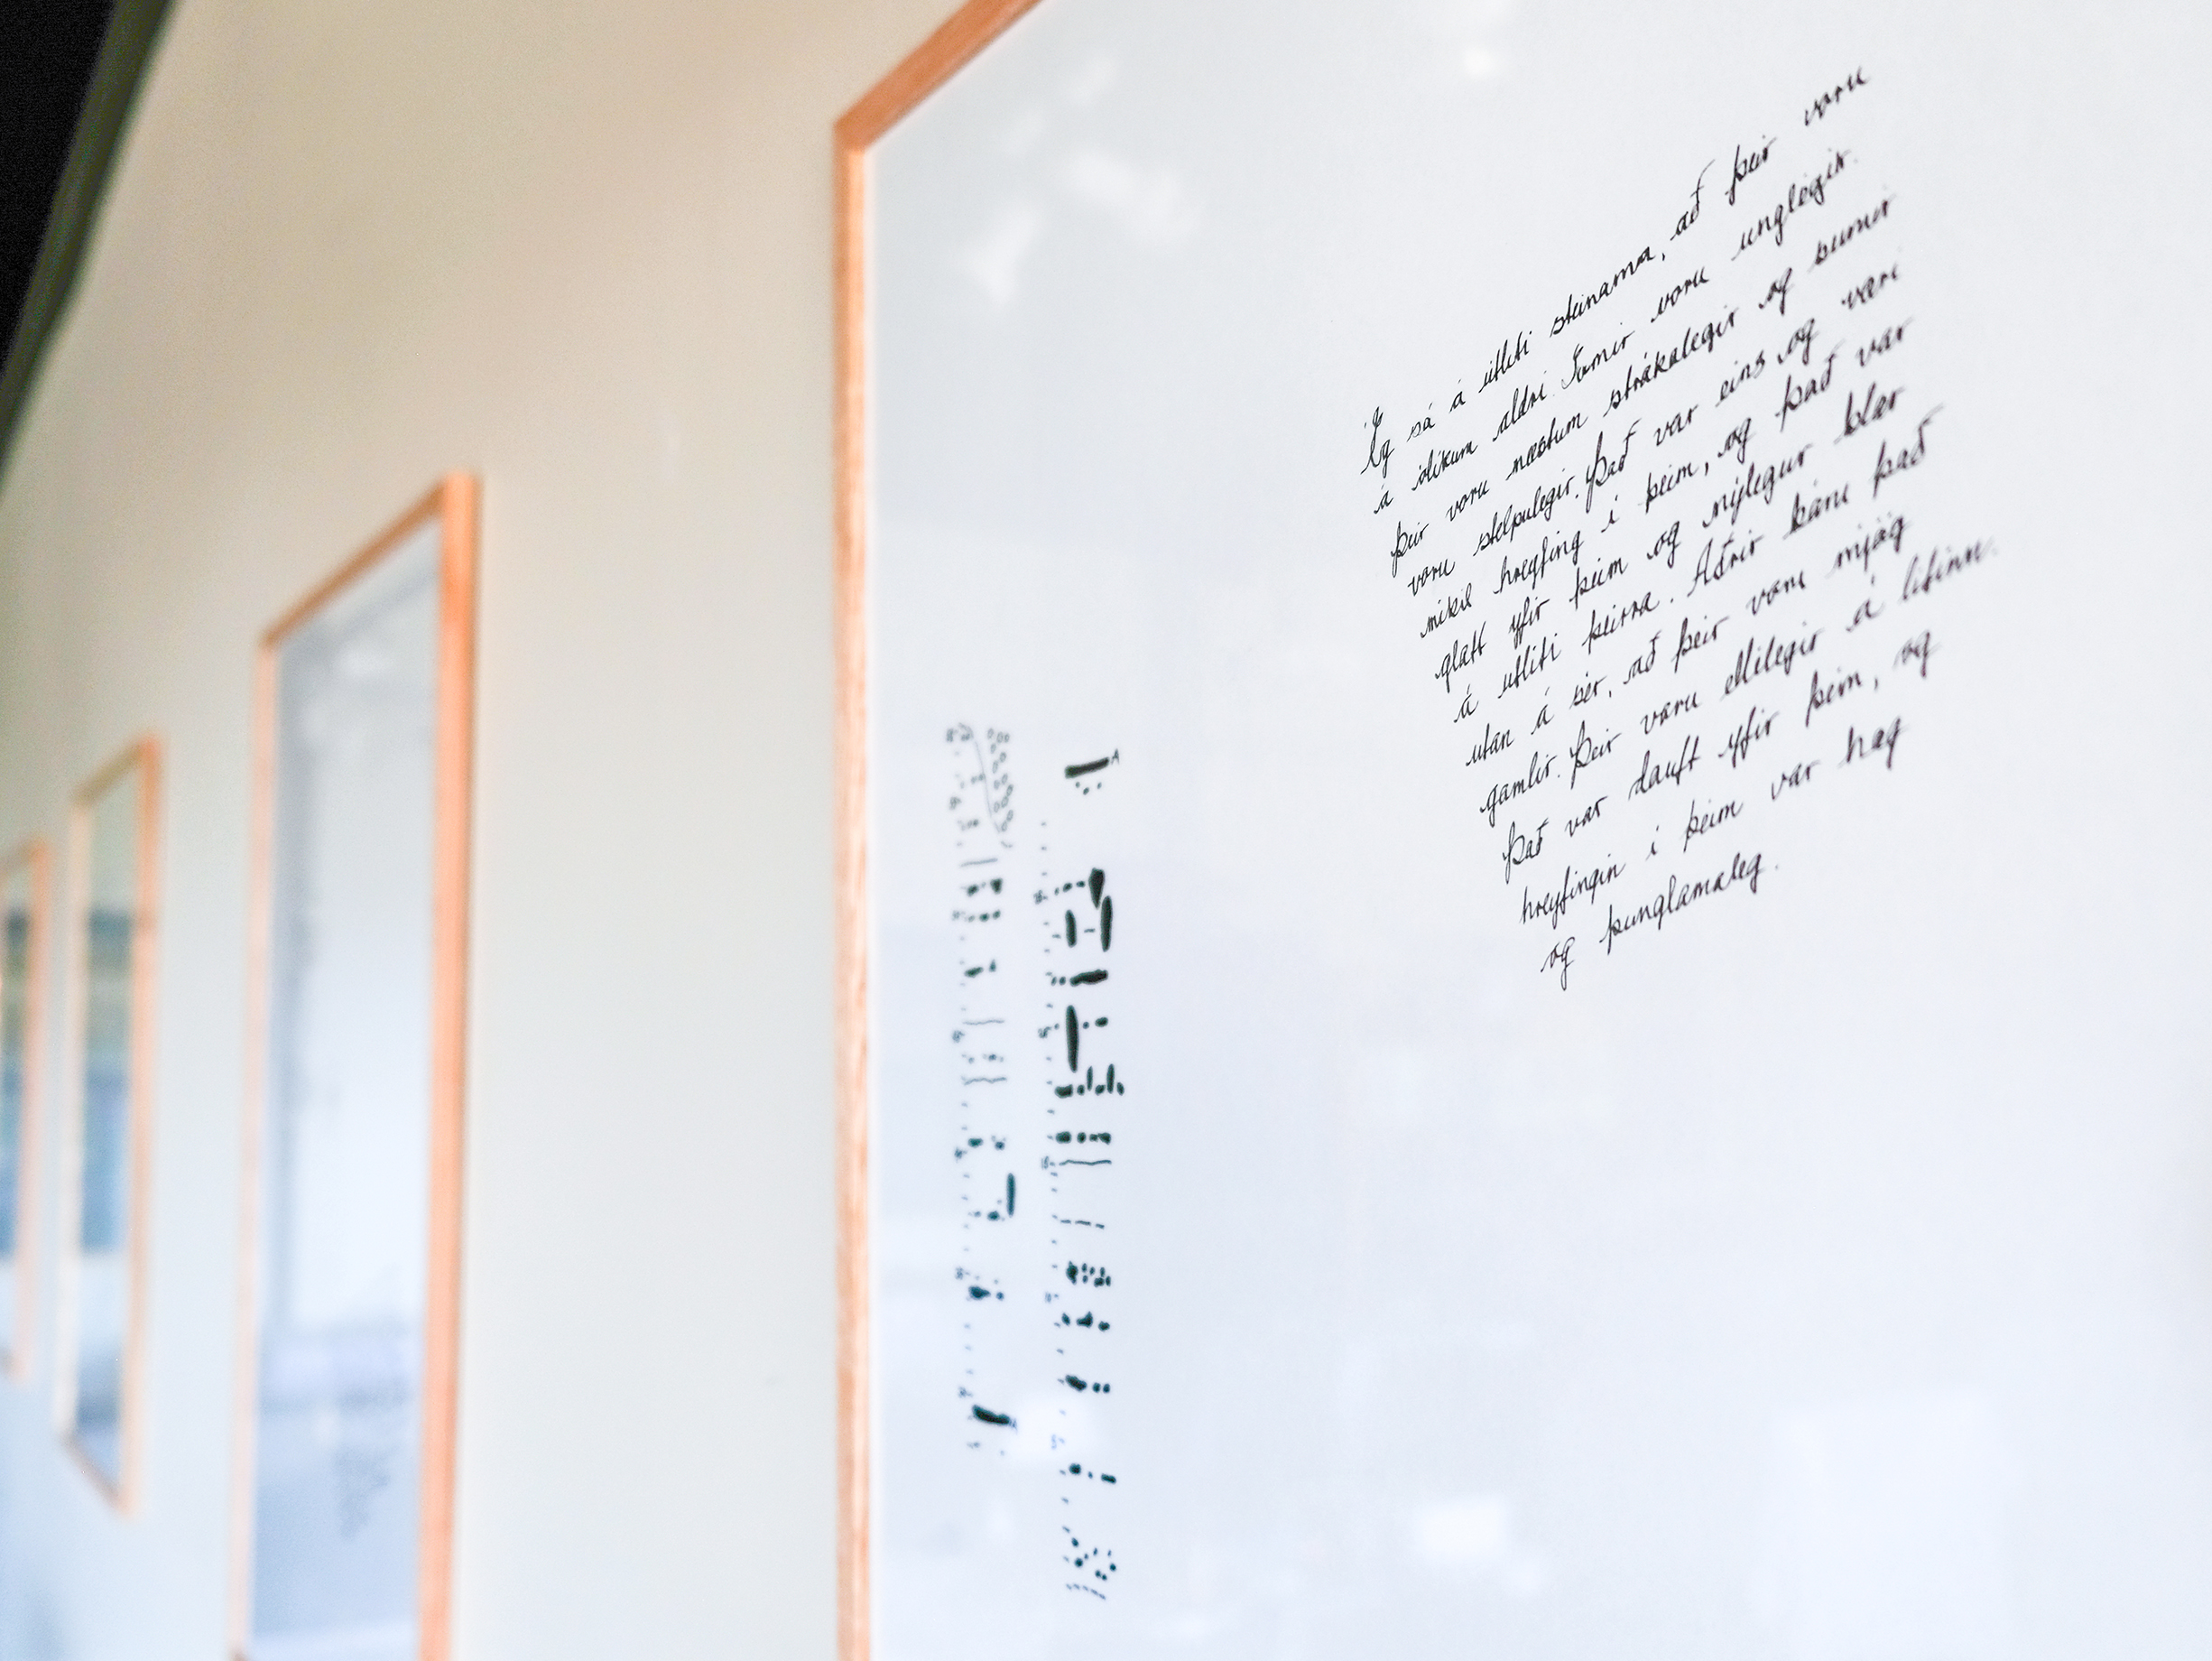 Ég sá á útliti steinanna, að þeir voru
á ólíkum aldri. Sumir voru unglegir.
Þeir voru næstum strákalegir og sumir
voru stelpulegir. Það var eins og væri
mikil hreyfing í þeim, og það var
glatt yfir þeim og nýlegur blær
á útliti þeirra. Aðrir báru það
utan á sér, að þeir voru mjög
gamlir. Þeir voru ellilegir á litinn.
Það var dauft yfir þeim, og
hreyfingin í þeim var hæg
og þunglamaleg.